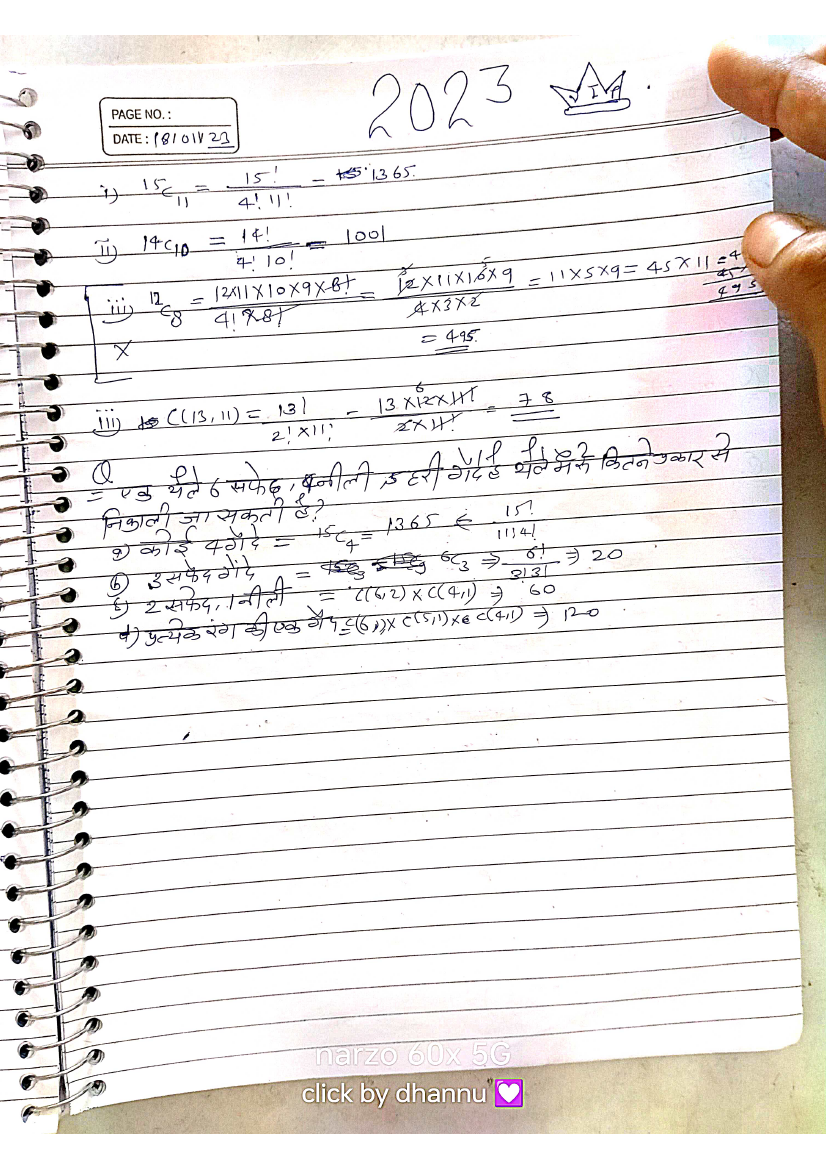 2023 VIP
PAGE NO. :
DATE : 18/01/23
i) 15C11 = 15! / 4! 11! = 1365
ii) 14C10 = 14! / 4! 10! = 1001
iii) 12C8 = 12×11×10×9×8! / 4! × 8! = 12×11×10×9 / 4×3×2 = 11×5×9 = 45×11 =
× = 495
iii) C(13,11) = 13! / 2! × 11! = 13×12×11! / 2×11! = 78
Q
= एक थैले 6 सफेद, 4नीली, 5 हरी गेंद है थैले कितने प्रकार से
निकाली जा सकती है?
a) कोई 4 गेंदे = 15C4 = 1365 ← 15! / 11!4!
b) 3 सफेद गेंदे = 6C3 ⇒ 6! / 3!3! ⇒ 20
c) 2 सफेद, 1 नीली = C(6,2) × C(4,1) ⇒ 60
d) प्रत्येक रंग की एक गेंद = C(6,1) × C(5,1) × C(4,1) ⇒ 120
narzo 60x 5G
click by dhannu